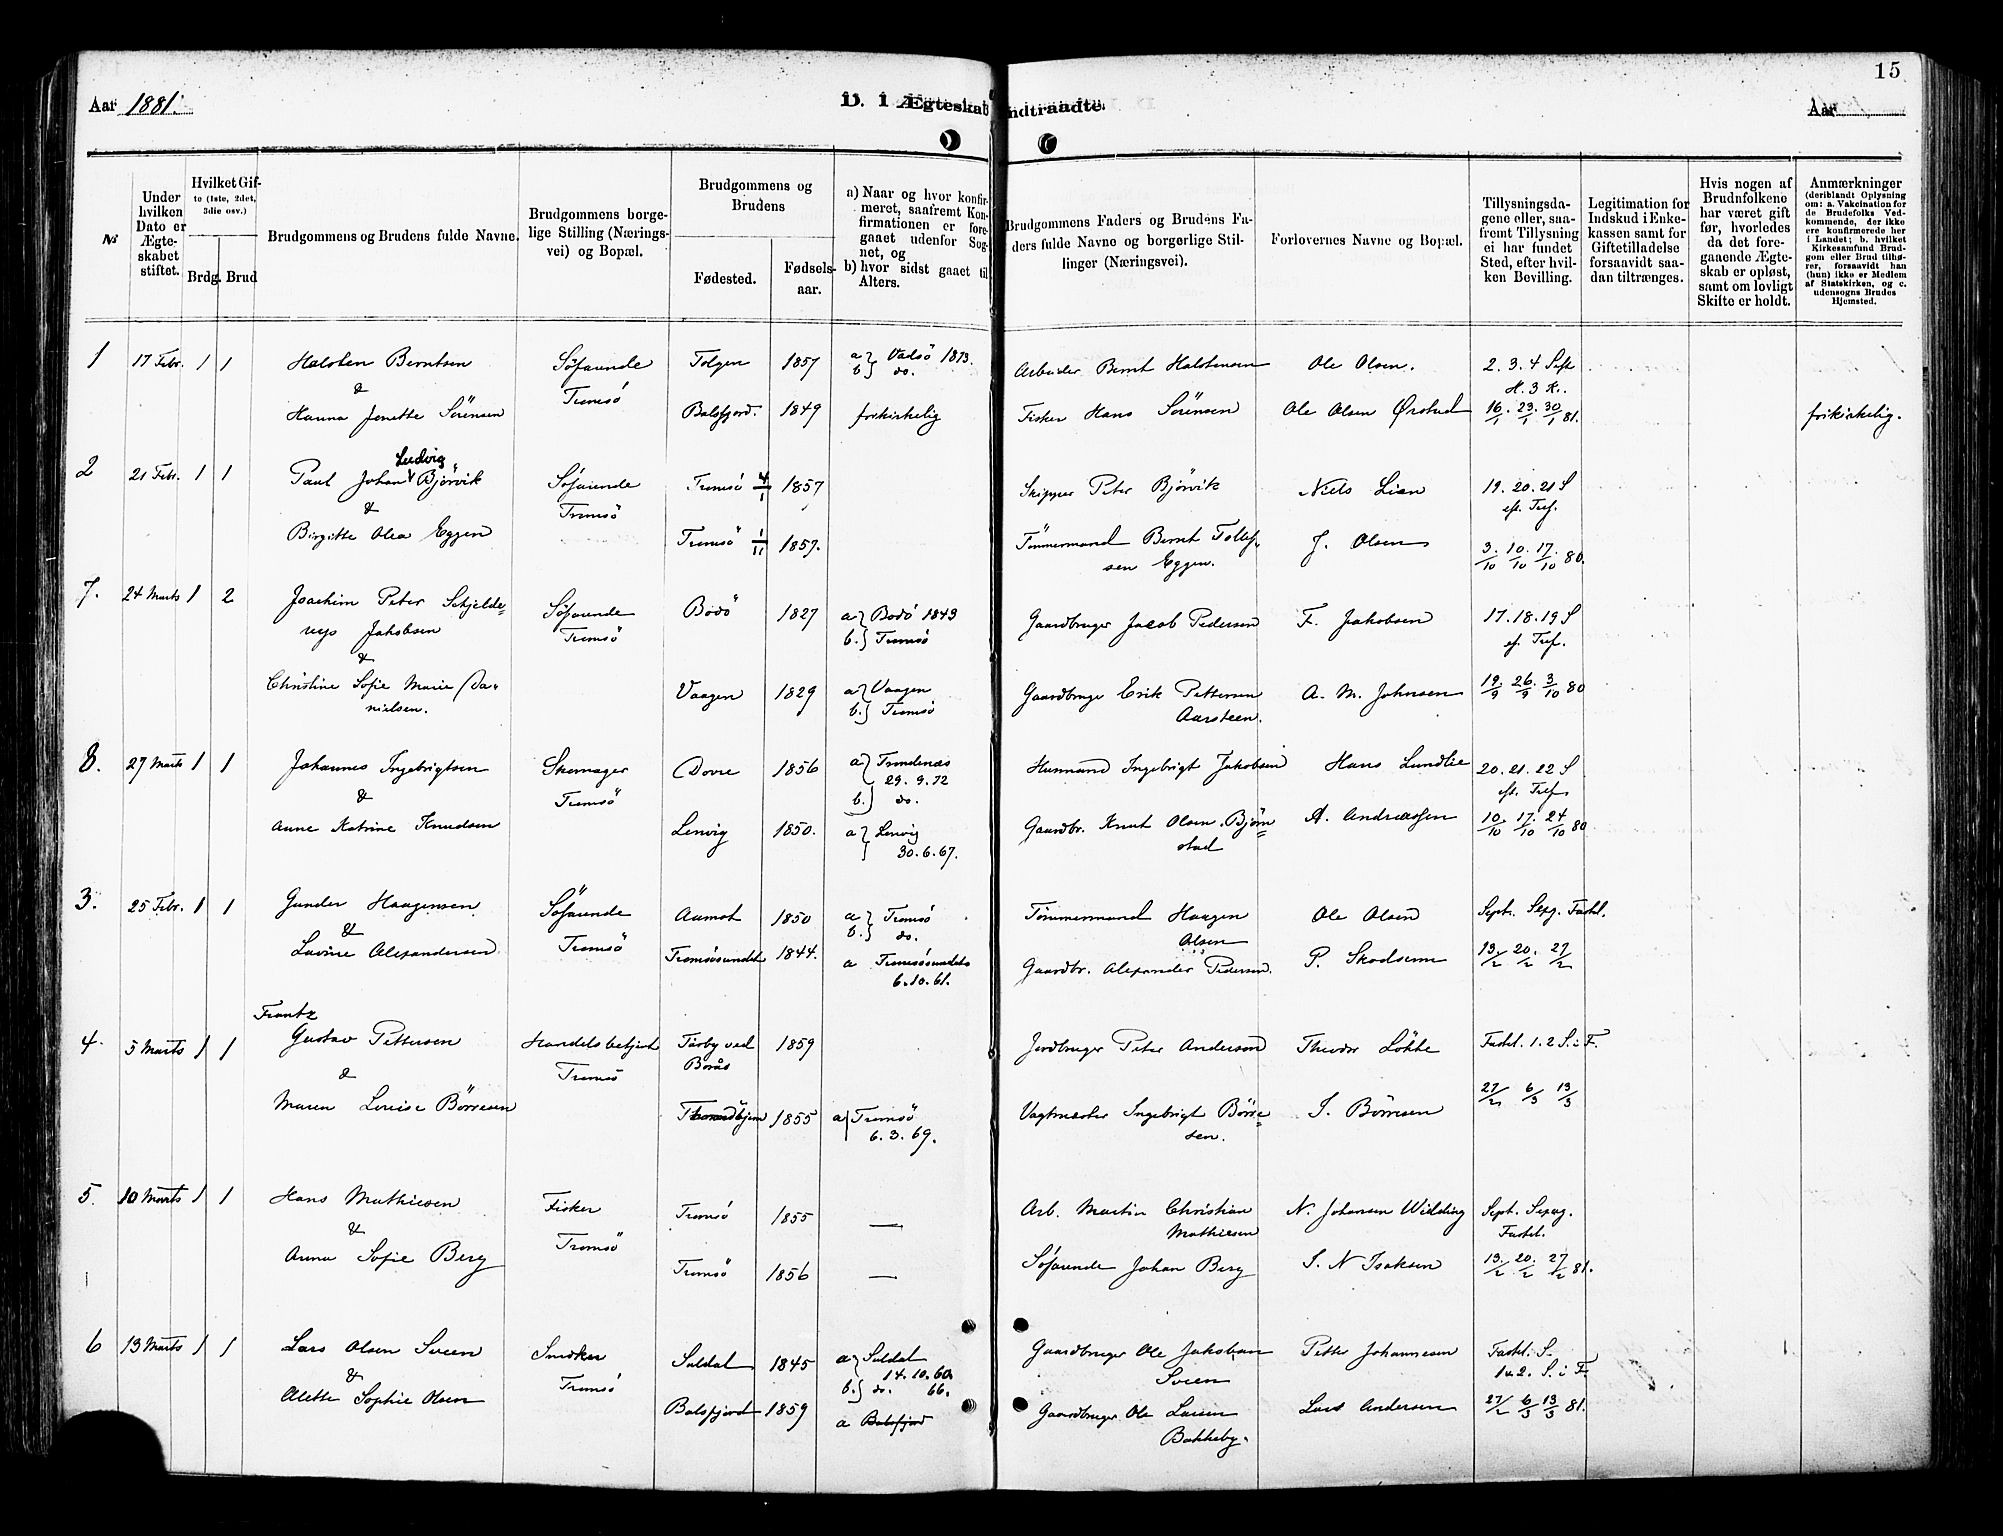 15
Aar 1881.
D. 1 Ægteskab
indtraadte.
Aar
№
Under hvilken Dato er Ægteskabet stiftet.
Hvilket Gifte (1ste, 2det, 3die osv.)
Brdg. Brud
Brudgommens og Brudens fulde Navne.
Brudgommens borgelige Stilling (Næringsvei) og Bopæl.
Brudgommens og Brudens
Fødested.
Fødselsaar.
a) Naar og hvor konfirmeret, saafremt Konfirmationen er foregaaet udenfor Sognet, og
b) hvor sidst gaaet til Alters.
Brudgommens Faders og Brudens Faders fulde Navne og borgerlige Stillinger (Næringsvei).
Forlovernes Navne og Bopæl.
Tillysningsdagene eller, saafremt Tillysning ei har fundet Sted, efter hvilken Bevilling.
Legitimation for Indskud i Enkekassen samt for Giftetilladelse forsaavidt saadan tiltrænges.
Hvis nogen af Brudnfolkene har været gift før, hvorledes da det foregaaende Ægteskab er opløst, samt om lovligt Skifte er holdt.
Anmærkninger
(deriblandt Oplysning om: a. Vakcination for de Brudefolks Vedkommende, der ikke ere konfirmerede her i Landet; b. hvilket Kirkesamfund Brudgom eller Brud tilhører, forsaavidt han (hun) ikke er Medlem af Statskirken, og c. udensogns Brudes Hjemsted.
1 17 Febr. 1 1 Halsten Berntsen Søfarende Tolgen 1857 a} Vadsö 1873. b} do. Arbeider Bernt Halstensen Ole Olsen. 2. 3. 4 S eft H. 3 K.
& Tromsö
Hanna Jenette Sörensen Balsfjord. 1849 frikirkelig Fisker Hans Sörensen Ole Olsen Ørstad 16/1 23/1 30/1 81. frikirkelig.
2 21 Febr. 1 1 Paul Johan Ludvig Bjørvik Söfarende Tromsö 4/1 1857 Skipper Peter Bjørvik Niels Lien 19. 20. 21 S
& Tromsö ef. Tref.
Birgitte Olea Eggen Tromsö 1/11 1857. Tömmermand Bernt Tollefsen Eggen. J. Olsen 3/10 10/10 17/10 80.
7. 24 Marts 1 2 Joachim Peter Schjelderup Jakobsen Söfarende Bodö 1827 a} Bodö 1843 Gaardbruger Jacob Pedersen F. Jakobsen 17. 18. 19 S
& Tromsö b.} Tromsö ef. Tref.
Christine Sofie Marie Danielsen. Vaagen 1829 a} Vaagen b.} Tromsö Gaardbruge Erik Pettersen Aarsteen. A. M. Johnsen 19/9 26/9 3/10 80
8. 27 Marts 1 1 Johannes Ingebrigtsen Skomager Dovre 1856 a} Trondenæs 29. 9. 72 Husmand Ingebrigt Jakobsen Hans Lundlie 20. 21. 22 S
& Tromsö b.} do. eft. Tref.
Anne Katrine Knudsen Lenvig 1850. a} Lenvig 30. 6. 67. Gaardbr. Knut Olsen Bjørnstad A. Andreassen 10/10 17/10 24/10 80
3. 25 Febr. 1 1 Gunder Haagensen Söfarende Aamot 1850 a} Tromsö b.} do. Tömmermand Haagen Olsen Ole Olsen Sept. Sexg. Fastel.
& Tromsö
Lavine Alexandersen Tromsösundet 1844. a Tromsösundets 6. 10. 61. Gaardbr. Alexander Pedersen. P. 13/2 20/2 27/2
4. 5 Marts 1 1 Frantz Gustav Pettersen Handelsbetjent Tarby ved Borås 1859 Jordbruger Peter Anderson Theodor Lökke Fastel. 1. 2 S. i F.
& Tromsö
Maren Louise Börresen Trondhjem 1855 a} Tromsö 6. 3. 69. Vagtmester Ingebrigt Börresen. I. Börresen 27/2 6/3 13/3
5. 10 Marts 1 1 Hans Mathiesen Fisker Tromsö 1855 — Arb. Martin Christian Mathiesen N. Johansen Widding Sept. Sexag. Fastel.
& Tromsö
Anna Sofie Berg Tromsö 1856 — Söfarende Johan Berg I. N Isaksen 13/2 20/2 27/2 81.
6 13 Marts 1 1 Lars Olsen Sveen Snedker Suldal 1845 a} Suldal 14. 10. 60. b.} do. 66. Gaardbruger Ole Jakobsen Sveen Petter Johannesen Fastel. S. 1 & 2. S. i F.
& Tromsö
Alette Sophie Olsen Balsfjord 1859 a Balsfjord Gaardbruger Ole Larsen Bakkeby. Lars Andersen 27/2 6/3 13/3 81.